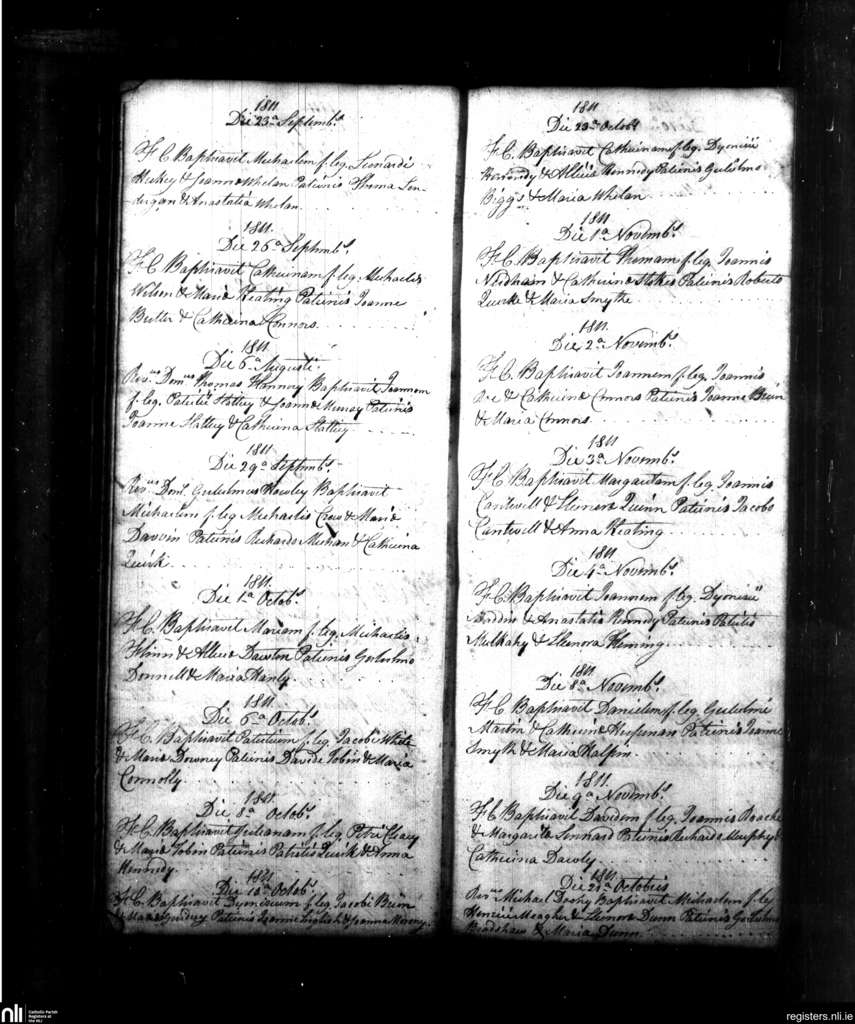 1811
Die 23a Septembs.
FC Baptisavit Michaelem f. leg. Leonardi
Hickey & Joanna Whelan Patrinis Thoma Lon-
dergan & Anastatia Whelan
1811.
Die 26a Septembs.
FC Baptisavit Catherinam f. leg. Michaelis
Wilson & Maria Keating Patrinis Joanne
Butler & Catherina Connors
1811.
Die 6a Augusti.
Revus Domus Thomas Flannory Baptisavit Joannem
f. leg. Patritii Slattey & Joanna Murray Patrinis
Joanne Slattey & Catherina Slattey
1811
Die 29a Septembs.
Revus Doms. Gulielmus Baptisavit
Michaelem f. leg Michaelis & Maria
Davvin Patrinis Richardo Mechan & Catherina
Quirk
1811.
Die 1a Octobs.
FC. Baptisavit Mariam f. leg. Michaelis
Flinn & Allicia Dawton Patrinis Gulielmo
Donnell & Maria Hanly
1811.
Die 6a Octobs.
FC. Baptisavit Patritium f. leg. Jacobi White
& Maria Downey Patrinis Davide Tobin & Maria
Connolly
1811
Die 8a Octobs.
FC. Baptisavit Julianam f. leg. Petri Cleary
& Maria Tobin Patrinis Patritio Quirk & Anna
Kennedy
1811
Die 10a Octobs.
FC. Baptisavit Dyonisium f. leg. Jacobi Brien
& Maria Patrinis Joanne English & Joanna
1811
Die 23a Octobs
FC. Baptisavit Catherinam f. leg. Dyonisii
Kennedy & Allicia Kennedy Patrinis Gulielmo
Biggs & Maria Whelan
1811
Die 1a Novembs.
FC Baptisavit Thomam f. leg. Joannis
Needham & Catherina Stokes Patrinis Roberto
Quirke & Maria Smythe
1811
Die 2a Novembs.
FC. Baptisavit Joannem f. leg. Joannis
& Catherina Connors Patrinis Joanne Brien
& Maria Connors
1811
Die 3a Novembs.
FC Baptisavit Margaritam f. leg. Joannis
Cantwell & Elenora Quinn Patrinis Jacobo
Cantwell & Anna Keating
1811
Die 4a Novembs
FC. Baptisavit Joannem f. leg. Dyonisii
& Anastatia Kennedy Patrinis Patritio
Mulkahy & Eleonora Fleming
1811
Die 8a Novembs.
FC Baptisavit Danielem f. leg. Gulielmi
Martin & Catherina Heffernan Patrinis Joanne
Smyth & Maria Halpin
1811
Die 9a Novembs.
FC Baptisavit Davidem f. leg. Joannis Roache
& Margarita Lennard Patrinis Richardo Murphy &
Catherina Dawly
1811
Die 21a Octobris
Revus Michael Baptisavit Michaelem f. leg
Henrici Meagher & Elenora Dunn Patrinis Gulielmo
Bradshaw & Maria Dunn
nli
Catholic Parish
Registers at
the NLI
registers.nli.ie